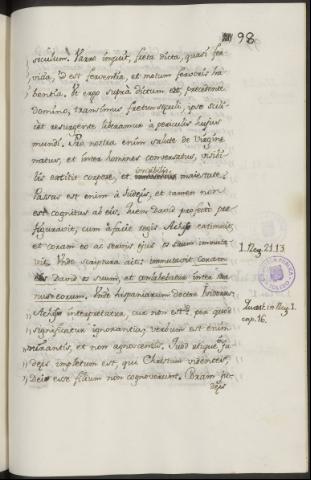 98
siculum. Varro inquit, freta dicta, quasi fer
vida, id est ferventia, et motum fervoris ha
bentia. Et ergo supra dictum est, præcedente
Domino, transimus fretum sæculi, ipso scili
cet resurgente liberamur à periculis hujus
mundi. Pro nostra enim salute de Virgine
natus, et inter homines conversatus, visibi
lis extitit corpore, et invisibilis maiestate.
Passus est enim à Judæis, et tamen non
est cognitus ab eis. Quem David profecto præ
figuravit, cum à facie regis Achis extimuit,
et coram eo ac servis ejus os suum immuta
vit. Unde scriptura ait: immutavit coram
eis David os suum, et conlabebatur inter ma
nus eorum. Unde hispaniarum doctor Isidorus,
Achis interpretatur, quod
significatur ignorantia, verbum est enim
mirantis, et non agnoscentis. Quod utique in Ju
dæis impletum est, qui Christum videntes,
Dei esse filium non cognoverunt. Dicam Ju-
dæis
1. Reg. 21.13
Quæst. in Reg. 1.
cap. 16.